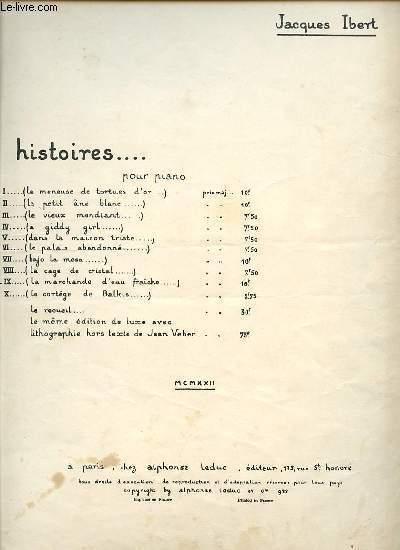 le-livre.com
Jacques Ibert
histoires....
pour piano
I.....(la meneuse de tortues d'or...) prix maj... 10f
II.....(le petit âne blanc......) " " 10f
III.....(le vieux mendiant.....) " " 7f50
IV.....(a giddy girl......) " " 7f50
V.....(dans la maison triste.....) " " 7f50
VI.....(le palais abandonné.......) " " 7f50
VII.....(bajo la mesa......) " " 10f
VIII.....(la cage de cristal......) " " 7f50
IX.....(la marchande d'eau fraîche....) " " 10f
X.....(le cortège de Balkis......) " "
le recueil....
le même édition de luxe avec
lithographie hors texte de Jean Veber " " 75f
MCMXXII
a paris, chez alphonse leduc, éditeur, 175, rue St honore
tous droits d'execution de reproduction et d'adaptation réservés pour tous pays
copyright by alphonse leduc et Cie 922
Imprimé en France Printed in France